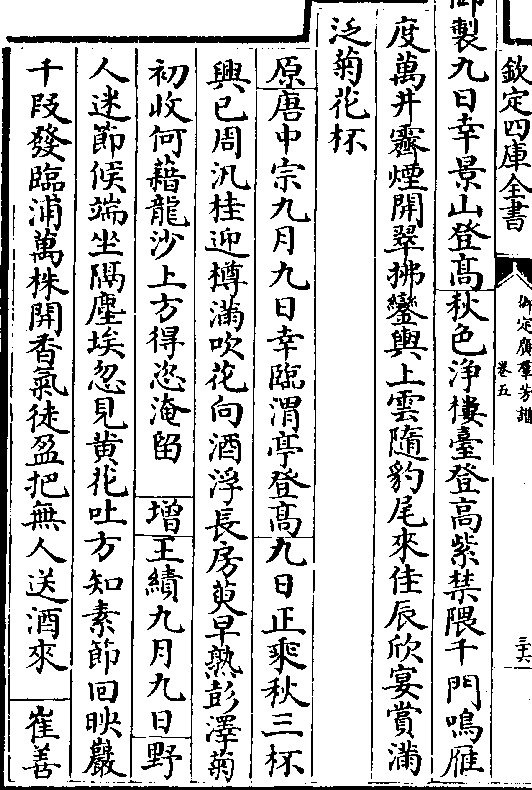 欽定四庫全書
御定廣羣芳譜
卷五
三十六
御製九日幸景山登高秋色淨樓臺登高紫禁隈千門鳴雁
度萬井霽煙開翠拂鑾輿上雲隨豹尾來佳辰欣宴賞滿
泛菊花杯
原唐中宗九月九日幸臨渭亭登高九日正乘秋三杯
興已周汎桂迎樽滿吹花向酒浮長房萸早熟彭澤菊
初收何藉龍沙上方得恣淹留 增王績九月九日野
人迷節候端坐隔塵埃忽見黄花吐方知素節回映巖
千段發臨浦萬株開香氣徒盈把無人送酒來 崔善